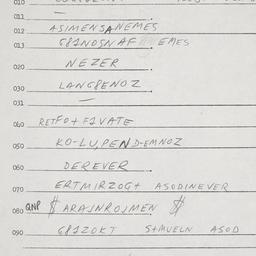 010
011 —
012 ASIMENSANEMES
013 G81NOSNAF EMES
020 NEZER
030 LANG8ENOZ
031 —
040 RETFO+ F1VATE
050 KO-LUPEND-EMNOZ
060 DEREVER
070 ERTMIRZOG+ ASODINEVER
080 QNP $ ARAJNROJMEN $
090 G81ZOKT S+MUELN ASOD